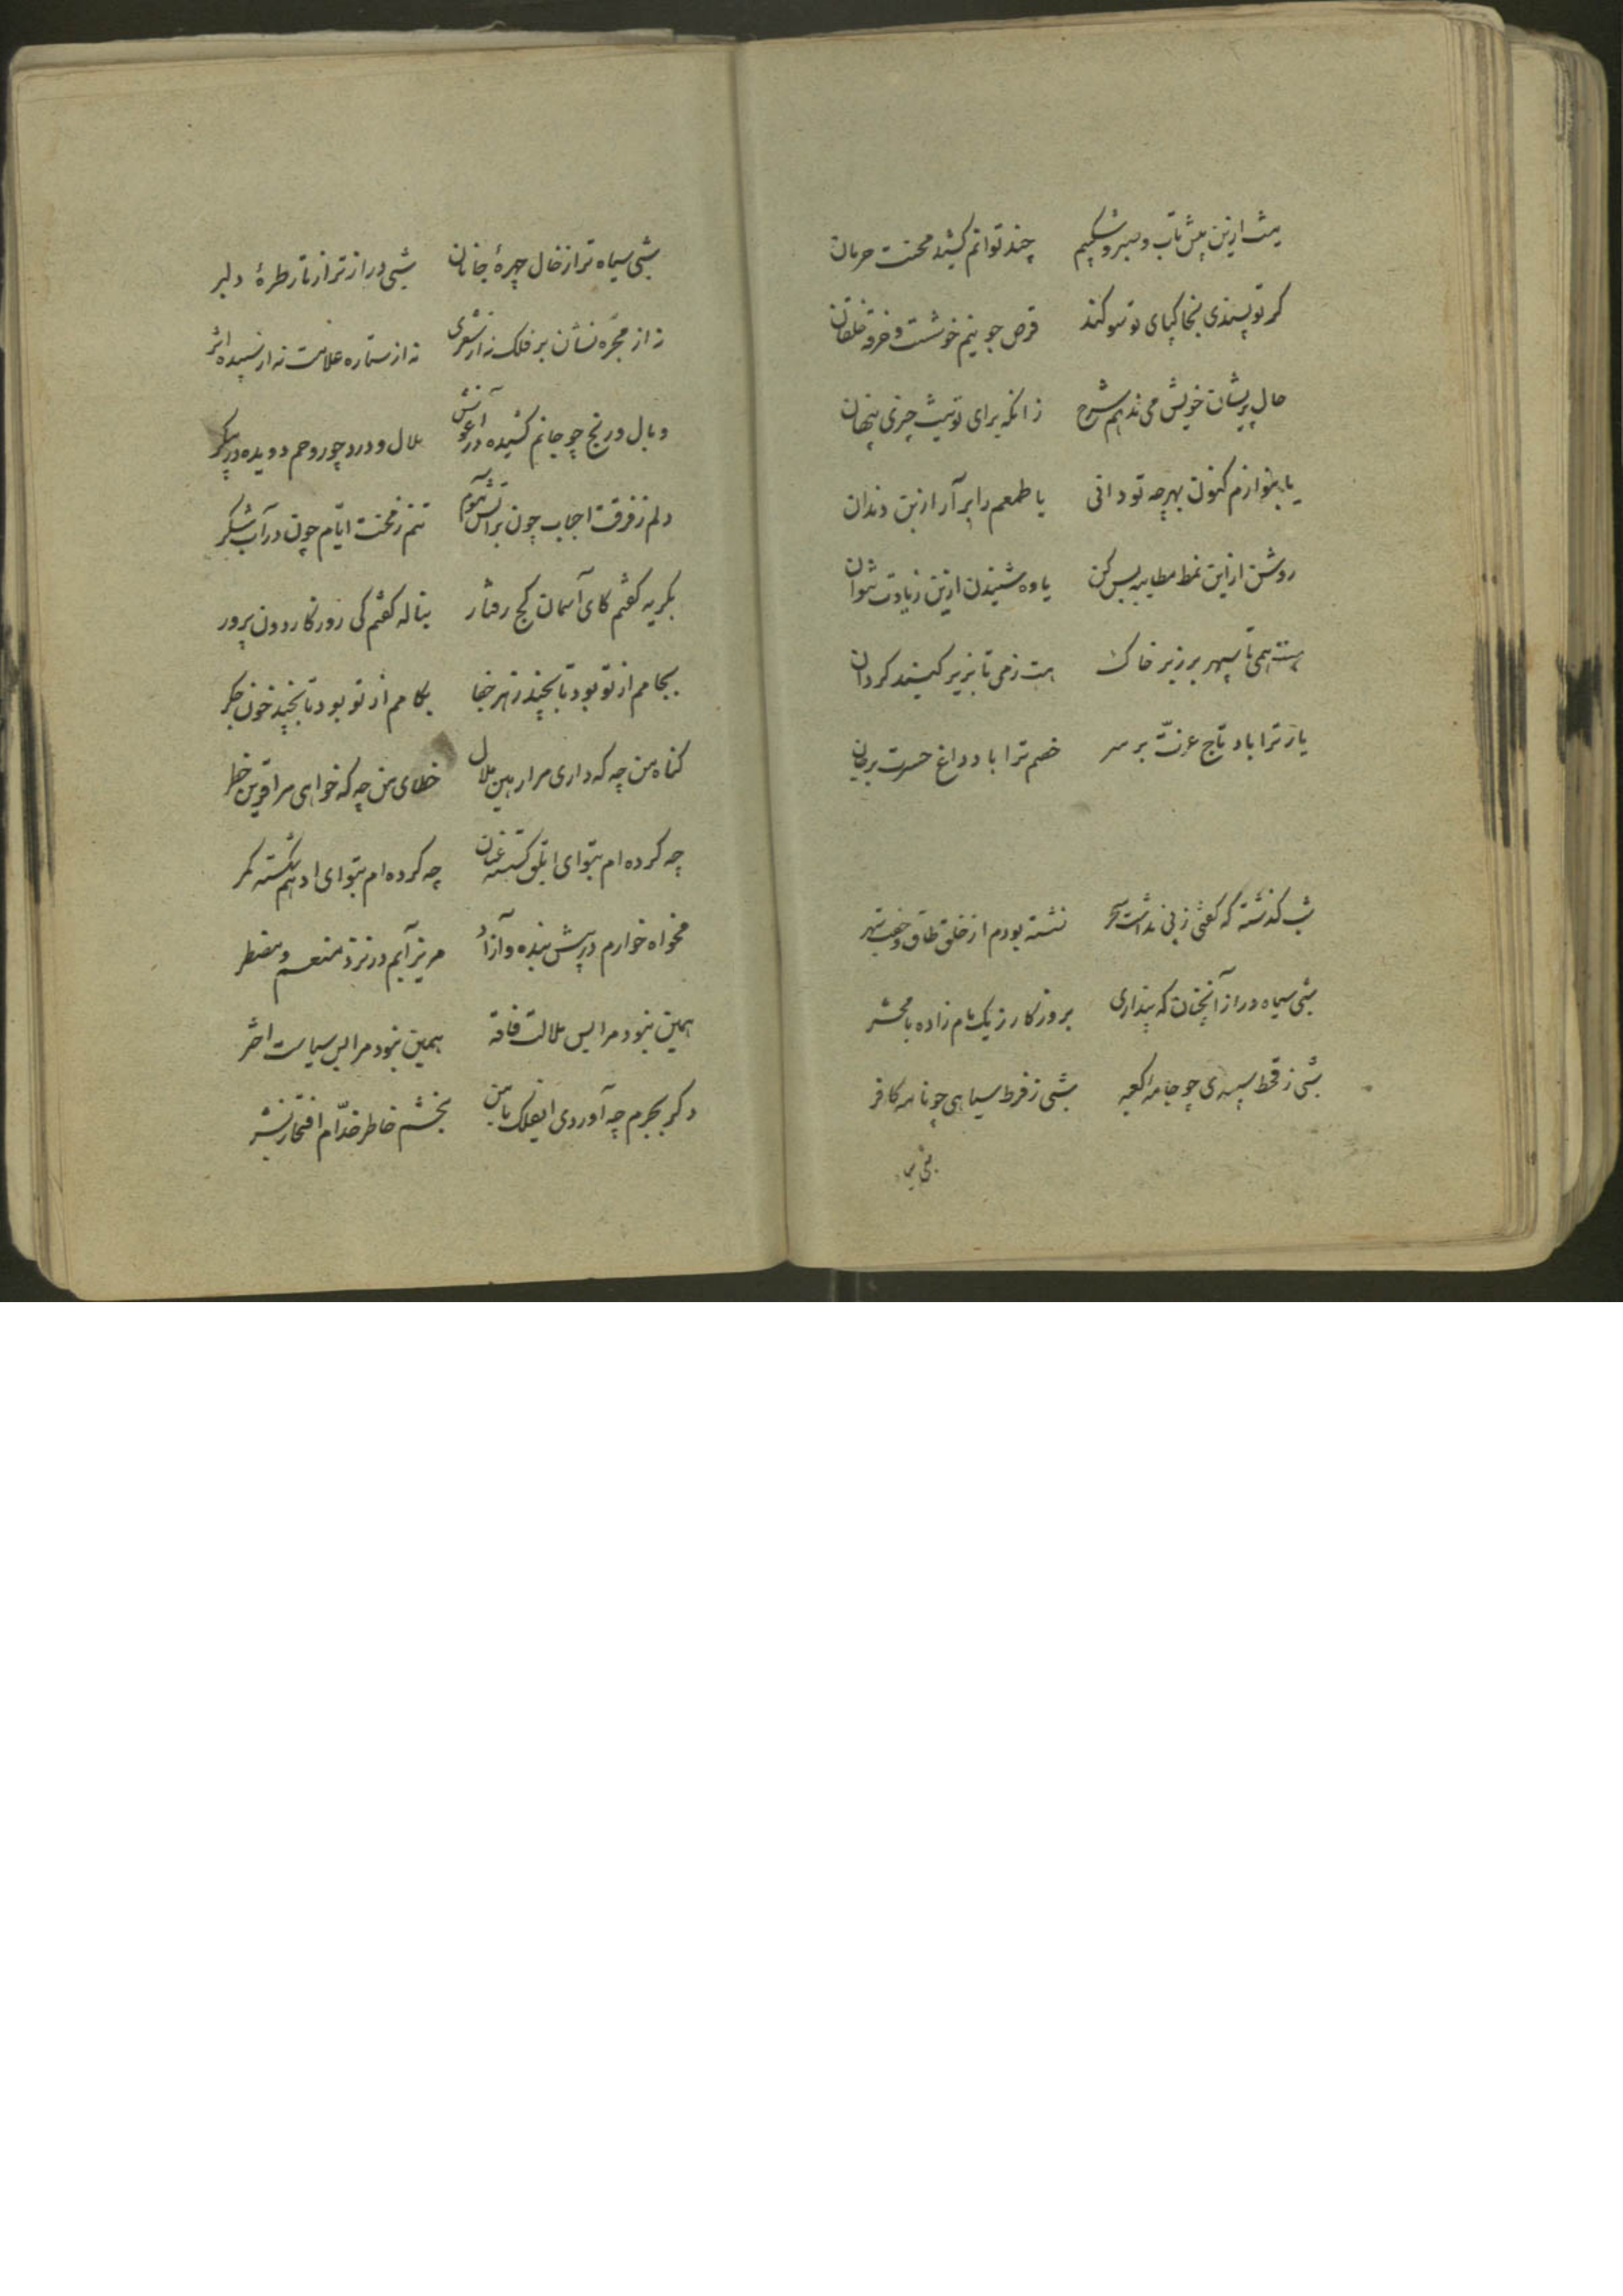 نیست ازین پیش تاب و صبر و شکیبم چند توانم کشید محنت حرمان
گر تو پسندی بخاکپای تو سوگند قرص جوینم خوشست و خرقه خلقان
حال پریشان خویش می ندهم شرح زانکه برای تو نیست چیزی پنهان
یا بنوازم کنون بهرچه تو دانی یا طمعم را برآر از بن دندان
روشن از این نمط مطایبه بس کن یاوه شنیدن ازین زیادت نتوان
هست همی تا سپهر بر زبر خاک هست زمی تا بزیر گنبد گردان
یار ترا باد تاج عزّت بر سر خصم ترا باد داغ حسرت بر جان
شب گذشته که گفتی ز پی نداشت سحر نشسته بودم از خلق طاق و جفت
شبی سیاه دراز آنچنان که پنداری بروزگار ز یک مام زاده با محشر
شبی ز قحط سپیدی چو جامهٔ کعبه شبی ز فرط سیاهی چو نامهٔ کافر
شبی سیاه
شبی سیاه تر از خال چهرهٔ جانان شبی دراز تر از تار طرهٔ دلبر
نه از مجرّه نشان بر فلک نه از شعری نه از ستاره علامت نه از سپیده اثر
وبال و رنج چو جانم کشیده در آغوش ملال و درد چو روحم دویده در پیکر
دلم ز فرقت احباب چون بر آتش موم تنم ز محنت ایّام چون در آب شکر
بگریه گفتم کای آسمان کج رفتار بناله گفتم کی روزگار دون پرور
بجامم از تو بود تا بچند زهر جفا بکامم از تو بود تا بچند خون جگر
گناه من چه که داری مرا رهین ملال خطای من چه که خواهی مرا قرین خطر
چه کرده ام بتو ای ابلق گسسته عنان چه کرده ام بتو ای ادهم شکسته کمر
مخواه خوارم در پیش بنده و آزاد مریز آبم در نزد منعم و مضطر
همین نبود مرا بس ملالت فاقه همین نبود مرا بس سیاست اختر
دگر بجرم چه آوردی ایفلک با من بخشم خاطر خدّام افتخار بشر